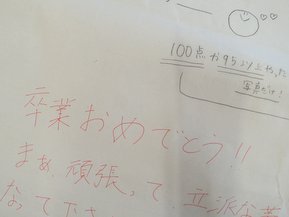 100点か95以上やった
写真だけ!
卒業おめでとう!!
まぁ、頑張って、立派な
なって下さ